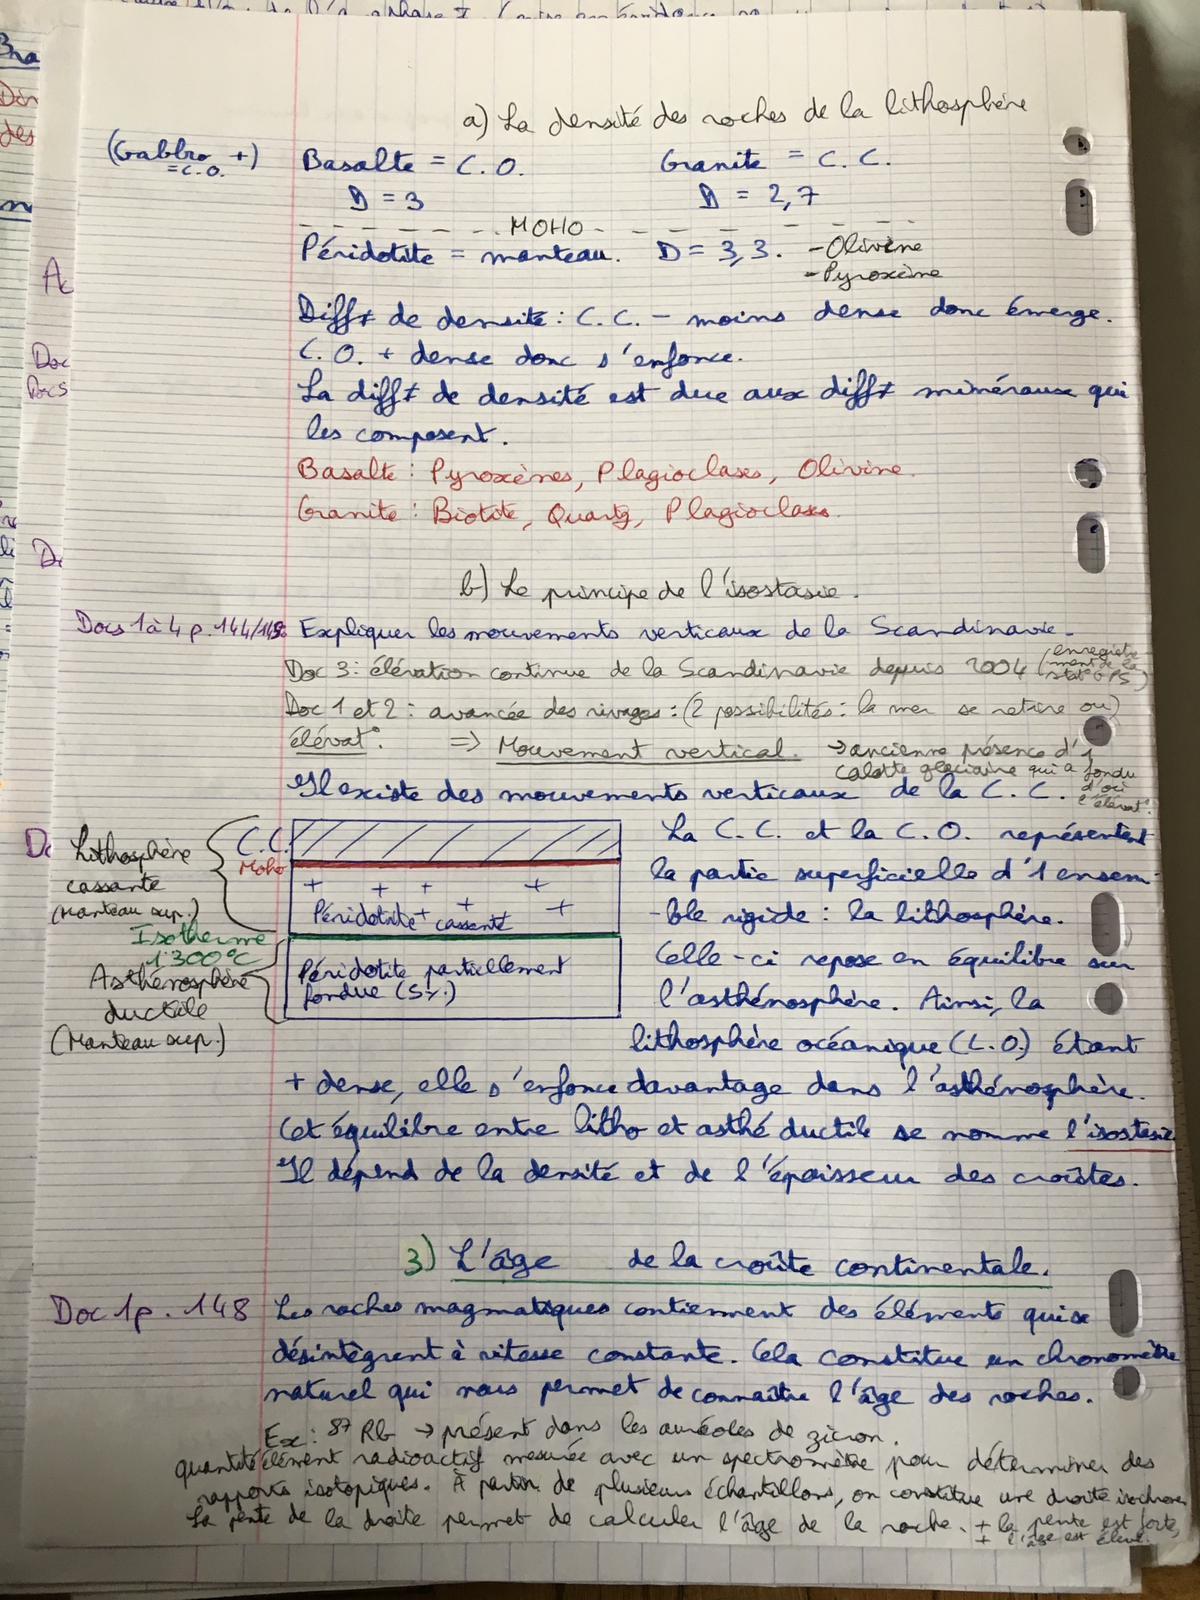 a) La densité des roches de la lithosphère
(Gabbro +) Basalte = C.O. Granite = C.C.
= C.O.
D = 3 D = 2,7
MOHO
Péridotite = manteau. D = 3,3. - Olivine
- Pyroxène
Diff≠ de densité : C.C. - moins dense donc émerge.
C.O. + dense donc s'enfonce.
La diff≠ de densité est due aux diff≠ minéraux qui
les composent.
Basalte : Pyroxènes, Plagioclases, Olivine.
Granite : Biotite, Quartz, Plagioclases.
b) Le principe de l'isostasie.
Docs 1 à 4 p. 144/145 Expliquer les mouvements verticaux de la Scandinavie.
Doc 3 : élévation continue de la Scandinavie depuis 2004 (enregistre
ment de la
stat° GPS)
Doc 1 et 2 : avancée des rivages : (2 possibilités : la mer se retire ou)
élévat°. => Mouvement vertical. → ancienne présence d'1
calotte glaciaire qui a fondu
d'où
l'élévat°.
Il existe des mouvements verticaux de la C.C.
Lithosphère
cassante
(Manteau sup.)
C.C.
Moho
Péridotite cassante
Isotherme
1300°C
Asthénosphère
ductile
(Manteau sup.)
Péridotite partiellement
fondue (5%.)
La C.C. et la C.O. représentent
la partie superficielle d'1 ensem-
-ble rigide : la lithosphère.
Celle-ci repose en équilibre sur
l'asthénosphère. Ainsi, la
lithosphère océanique (L.O.) étant
+ dense, elle s'enfonce davantage dans l'asthénosphère.
Cet équilibre entre litho et asthé ductile se nomme l'isostasie
Il dépend de la densité et de l'épaisseur des croûtes.
3) L'âge de la croûte continentale.
Doc 1 p. 148 Les roches magmatiques contiennent des éléments qui se
désintègrent à vitesse constante. Cela constitue un chronomètre
naturel qui nous permet de connaître l'âge des roches.
Ex : 87 Rb → présent dans les auréoles de zicron.
quantité élément radioactif mesurée avec un spectromètre pour déterminer des
rapports isotopiques. À partir de plusieurs échantillons, on constitue une droite isochrone
La pente de la droite permet de calculer l'âge de la roche. + la pente est forte,
+ l'âge est élevé.